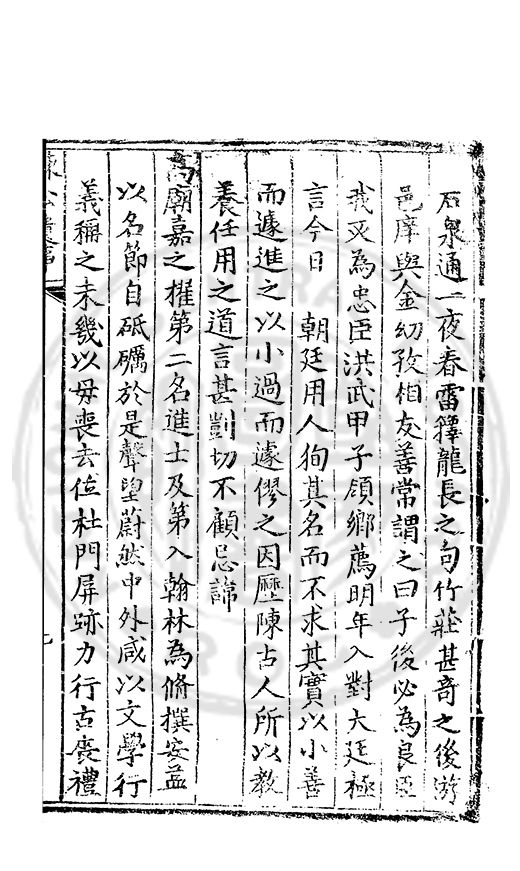 石泉通一夜春雷籜龍長之句竹莊甚奇之後游
邑庠與金幼孜相友善常謂之曰子後必為良臣
我必為忠臣洪武甲子領鄉薦明年入對大廷極
言今日　朝廷用人徇其名而不求其實以小善
而遽進之以小過而遽僇之因歷陳古人所以教
養任用之道言甚剴切不顧忌諱
高廟嘉之擢第二名進士及第入翰林為脩撰安益
以名節自砥礪於是聲望蔚然中外咸以文學行
義稱之未幾以毋喪去位杜門屏跡力行古喪禮